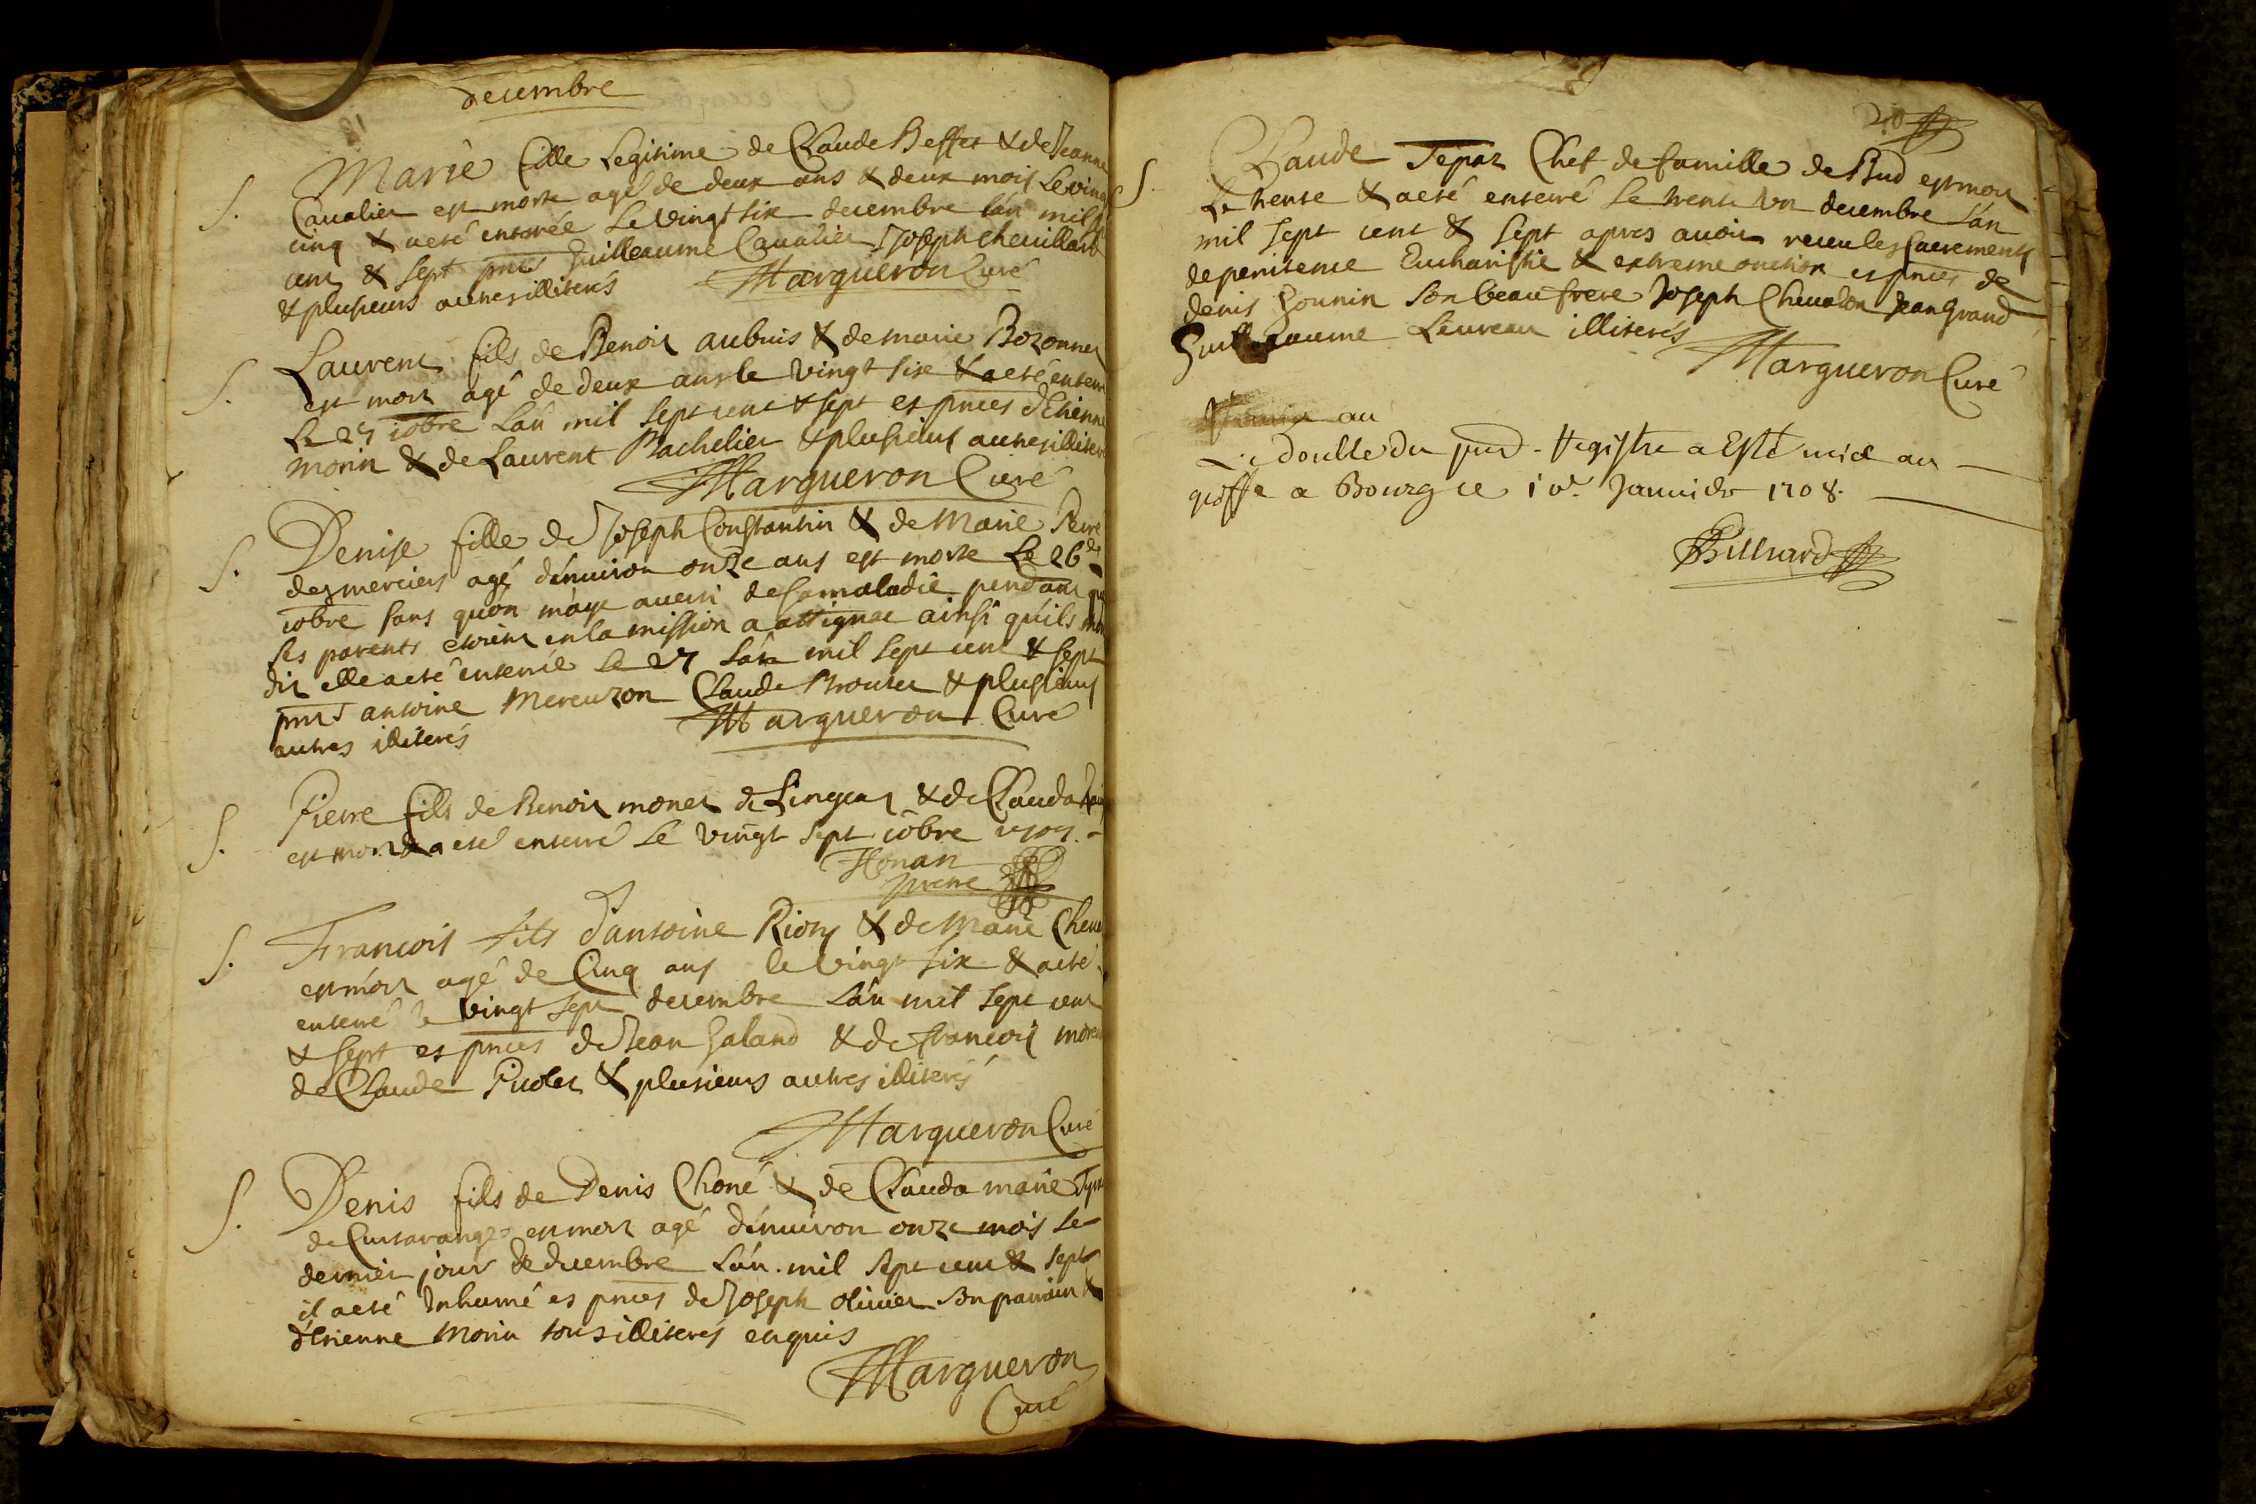 decembre
S. Marie fille Legitime de Claude Beffet & de Jeanne
Cavalier est morte agé de deux ans & deux mois Le vingt
cinq & aeté enterrée Le vingt six decembre lan mil
cent & sept pnts Guilleaume Cavalier Joseph chevillard
& plusieurs autres illiterés Margueron Curé
S. Laurent fils de Benoit aubuis & de marie Bozonnet
est mort agé de deux ans le vingt six & aeté enterré
Le 27 xobre Lan mil sept cent & sept es pnces d'Etienne
morin & de Laurent Bachelier & plusieurs autres illiterés
Margueron Curé
S. Denise fille de Joseph Constantin & de Marie
des merciers agé d'environ onze ans est morte Le 26 de
xobre sans quon maye averti de sa maladie pendant que
ses parents etoient en la mission a attignac ainsi quils mont
dit elle aeté enterrée Le 27 Lan mil sept cent & sept
pnts antoine Mereuzon Claude Brouter & plusieurs
autres illiterés Margueron Curé
S. Pierre fils de Benoit monet de & de Clauda
est mort & a eté enterré Le vingt sept xobre 1707
pretre
S. Francois fils d'antoine Rion & de Marie
est mort agé de Cinq ans le vingt six & aeté
enterré le vingt sept decembre Lan mil sept cent
& sept es pnces de Jean Galand & de francois
de Claude Pirolet & plusieurs autres illiterés
Margueron Curé
S. Denis fils de Denis Choné & de Clauda marie
de est mort agé d'environ onze mois Le
dernier jour de decembre Lan mil sept cent & sept
il aeté Inhumé es pnces de Joseph olivier son parrain &
d'Etienne Morin tous illiterés enquis
Margueron
Curé
20
S. Claude Tepaz Chef de famille de Bud est mort
Le trente & aeté enterré Le trente un decembre Lan
mil sept cent & sept apres avoir receu les sacrements
de penitence Eucharistie & extreme onction es pnces de
denis Gounin son beau frere Joseph Chevalon Jean Grand
Guilleaume Levreau illiterés
Margueron Curé
au
Le double du pnd. Registre a Esté mis au
greffe a Bourg ce 10e. Janvier 1708.
Billiard